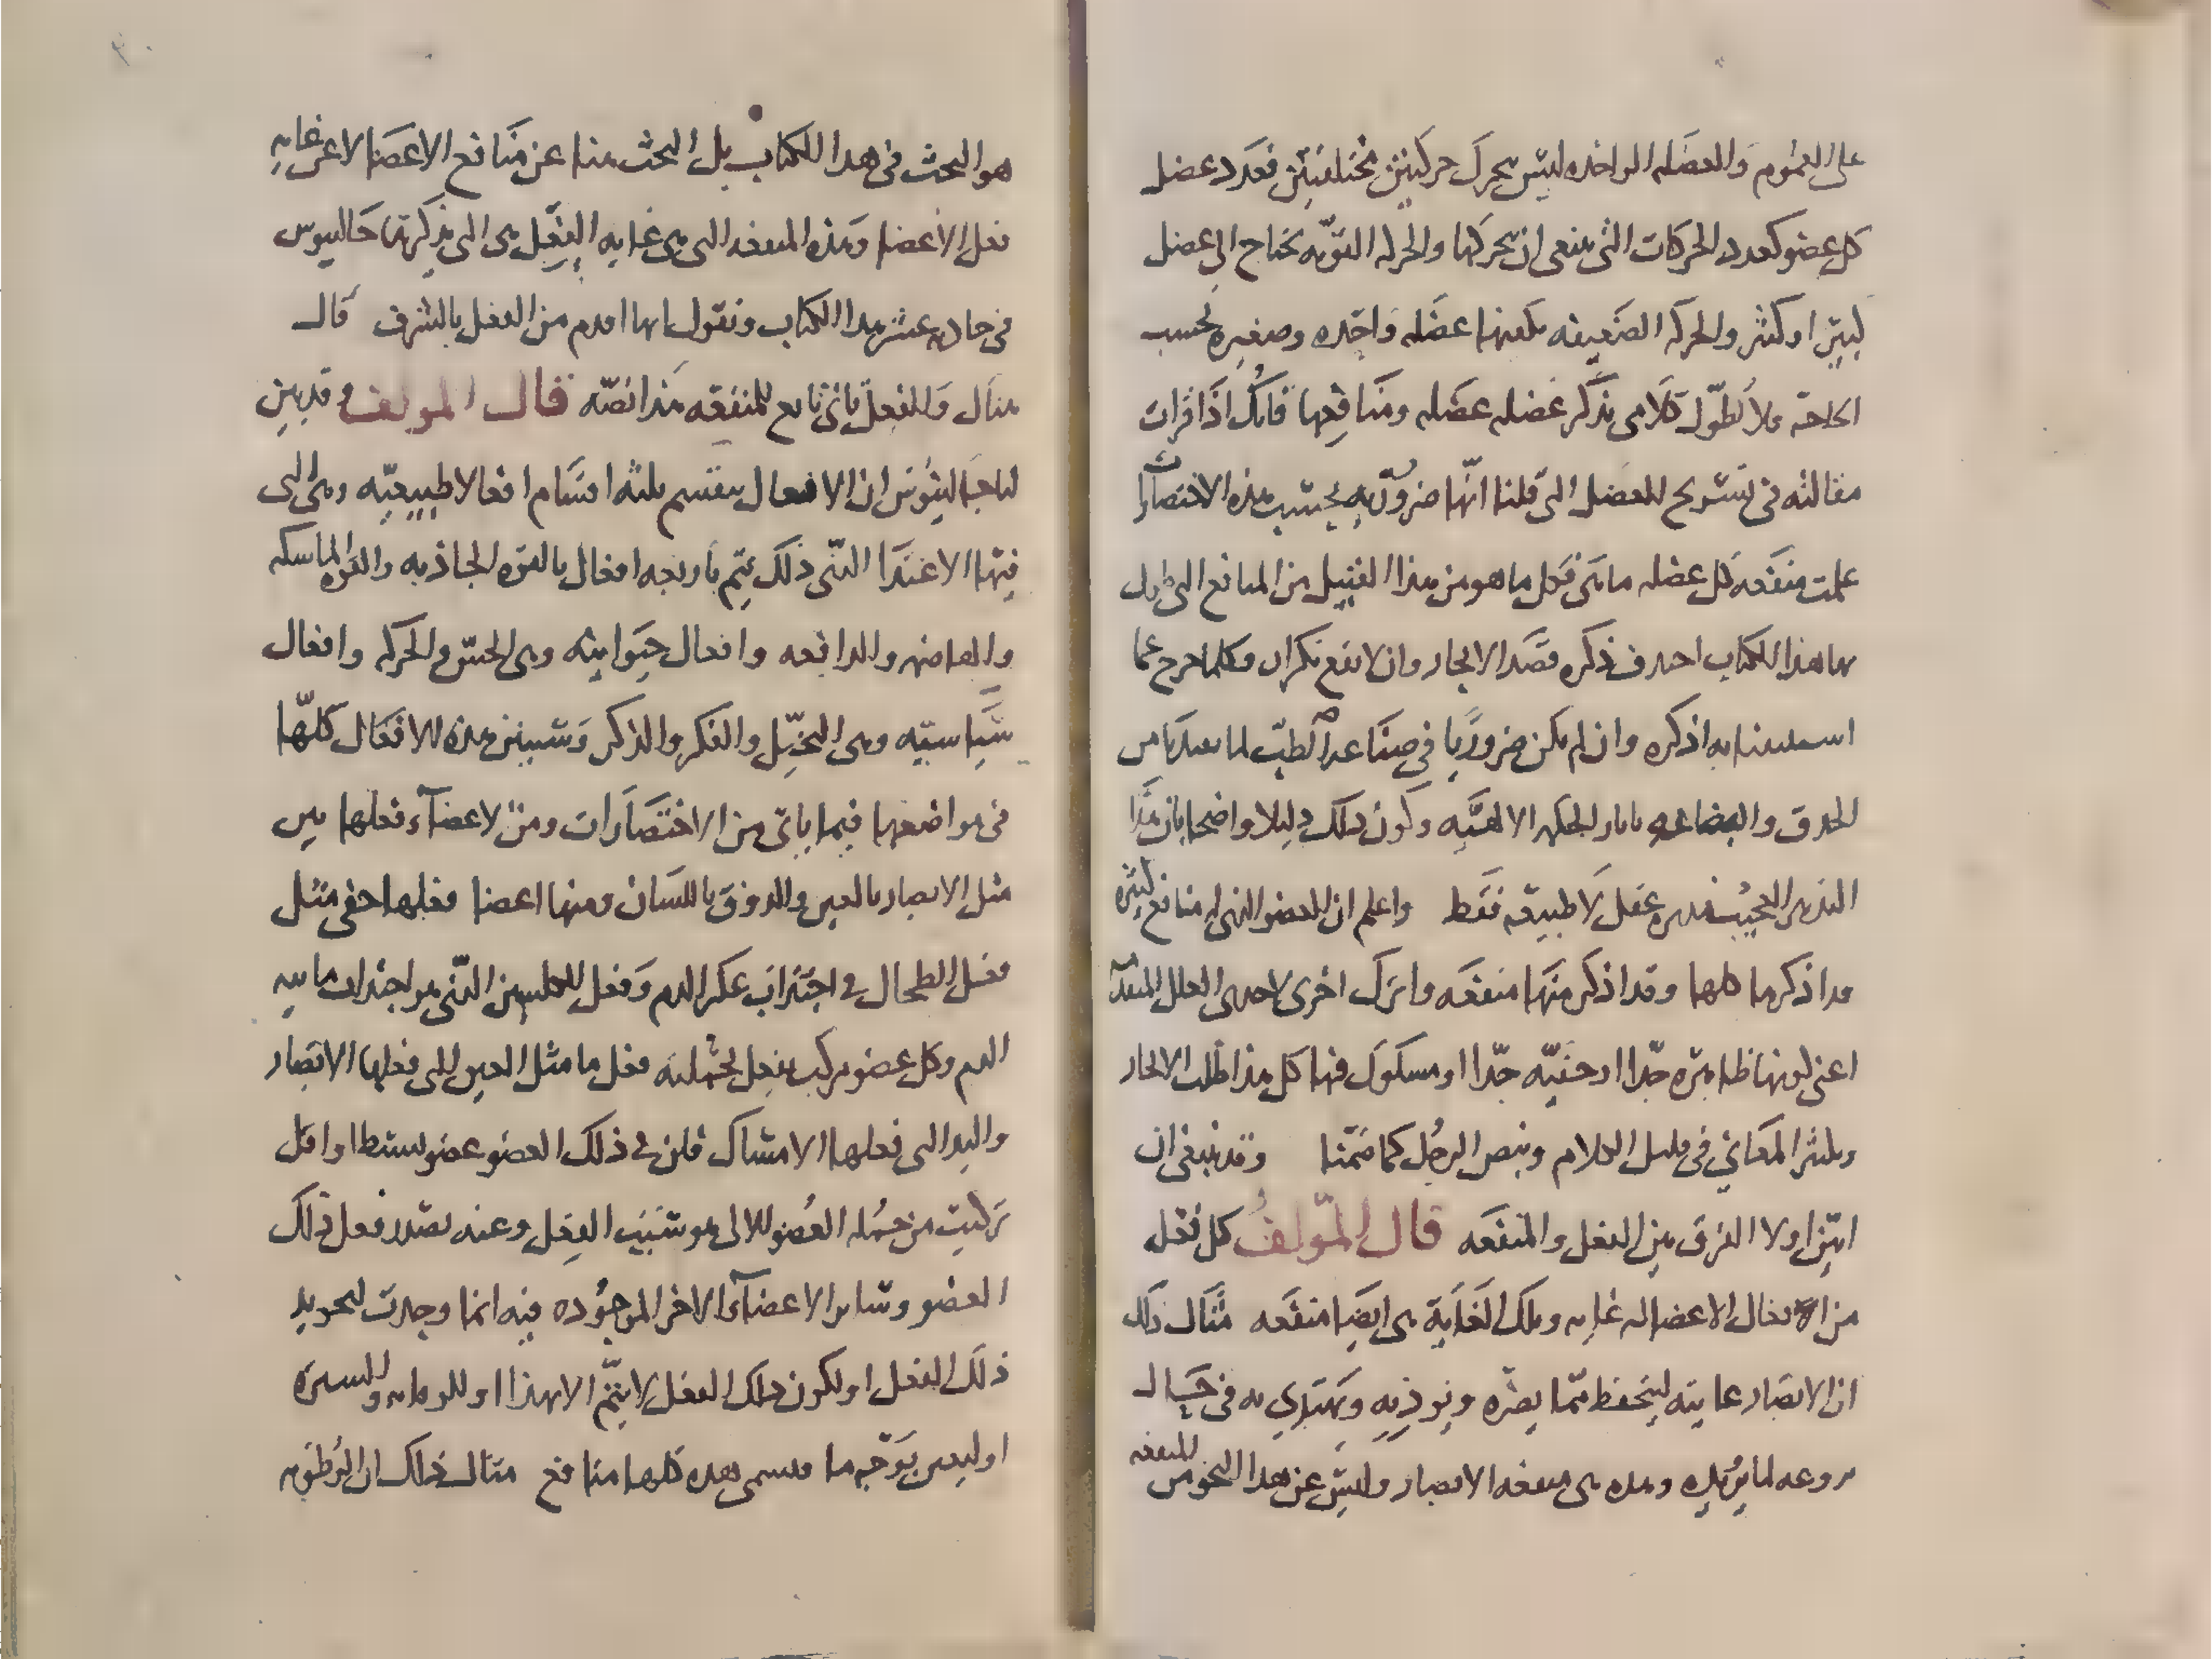 على العموم والعضله الواحده ليس يحرك حركتين مختلفتين فعدد عضل
كل عضو كعدد الحركات التى ينبغى ان يحركها والحركه القويه تحتاج الى عضل
كبير او كثير والحركه الضعيفه يكفيها عضله واحده وصغيره بحسب
الحاجه ولا نطول كلامى بذكر عضله عضله ومنافعها فانك اذا قرات
مقالته فى تشريح العضل التى قلنا انها ضروريه بحسب هذه الاختصارات
علمت منفعه كل عضله ما هى فكل ما هو من هذا القبيل من المنافع التى طول
بها هذا الكتاب احذف ذكره قصد الايجاز وان لا يقع تكرار وكلما خرج عما
به اذكره وان لم يكن ضروريا فى صناعه الطب لما
باثار الحكمه الالهيه وكون ذلك دليلا واضحا بان هذا
التدبير العجيب تدبير عقل لا طبيعه فقط واعلم ان العضو الذى له منافع كثيره
قد اذكرها كلها وقد اذكر منها منفعه واترك اخرى لاحدى العلل المتقدمه
اعنى لكونها ظاهره جدا او خفيه جدا او مشكوك فيها كل هذا طلب الايجاز
وتكثير المعانى فى قليل الكلام وبنص الرجل كما ضمنا وقد ينبغى ان
ابين اولا الفرق بين الفعل والمنفعه قال المولف كل فعل
من افعال الاعضا له غايه وتلك الغايه هى ايضا منفعه مثال ذلك
ان الابصار غايته ليتحفظ مما يضره ويوذيه ويهتدى به فى حال
لما يريده وهذه هى منفعه الابصار وليس عن هذا النحو من المنفعه
هو البحث فى هذا الكتاب بل البحث هنا عن منافع الاعضا لا عن غايه
فعل الاعضا وهذه المنفعه التى هى غايه الفعل هى التى يذكرها جالينوس
فى حاديه عشر هذا الكتاب ونقول انها اقدم من الفعل بالشرف قال
هناك والفعل ثانى تابع للمنفعه هذا نصه قال المولف وقد بين
لنا جالينوس ان الافعال ينقسم ثلثه اقسام افعالا طبيعيه وهى التى
فيها الاغتذا الذى ذلك يتم باربعه افعال بالقوه الجاذبه والقوه الماسكه
والهاضمه والدافعه وافعال حيوانيه وهى الحس والحركه وافعال
سياسيه وهى التخيل والفكر والذكر وسيبين هذه الافعال كلها
فى مواضعها فيما ياتى من الاختصارات ومن الاعضاء فعلها بين
مثل الابصار بالعين والذوق باللسان ومنها اعضا فعلها خفى مثل
فعل الطحال فى اجتذاب عكر الدم وفعل الكليتين الذى هو اجتذاب مائيه
الدم وكل عضو مركب يفعل بجملته فعل ما مثل العين التى فعلها الابصار
واليد التى فعلها الامساك فان فى ذلك العضو عضو بسيط او اقل
تركيب من جمله العضو الالى هو سبب الفعل وعنه يصدر فعل ذلك
العضو وساير الاعضاء الاخر الموجوده فيه انما وجدت لتجويد
ذلك الفعل او لكون ذلك الفعل لا يتم الا بهذا او للوقايه والستره
او ليعين بوجه ما فسمى هذه كلها منافع مثال ذلك ان الرطوبه